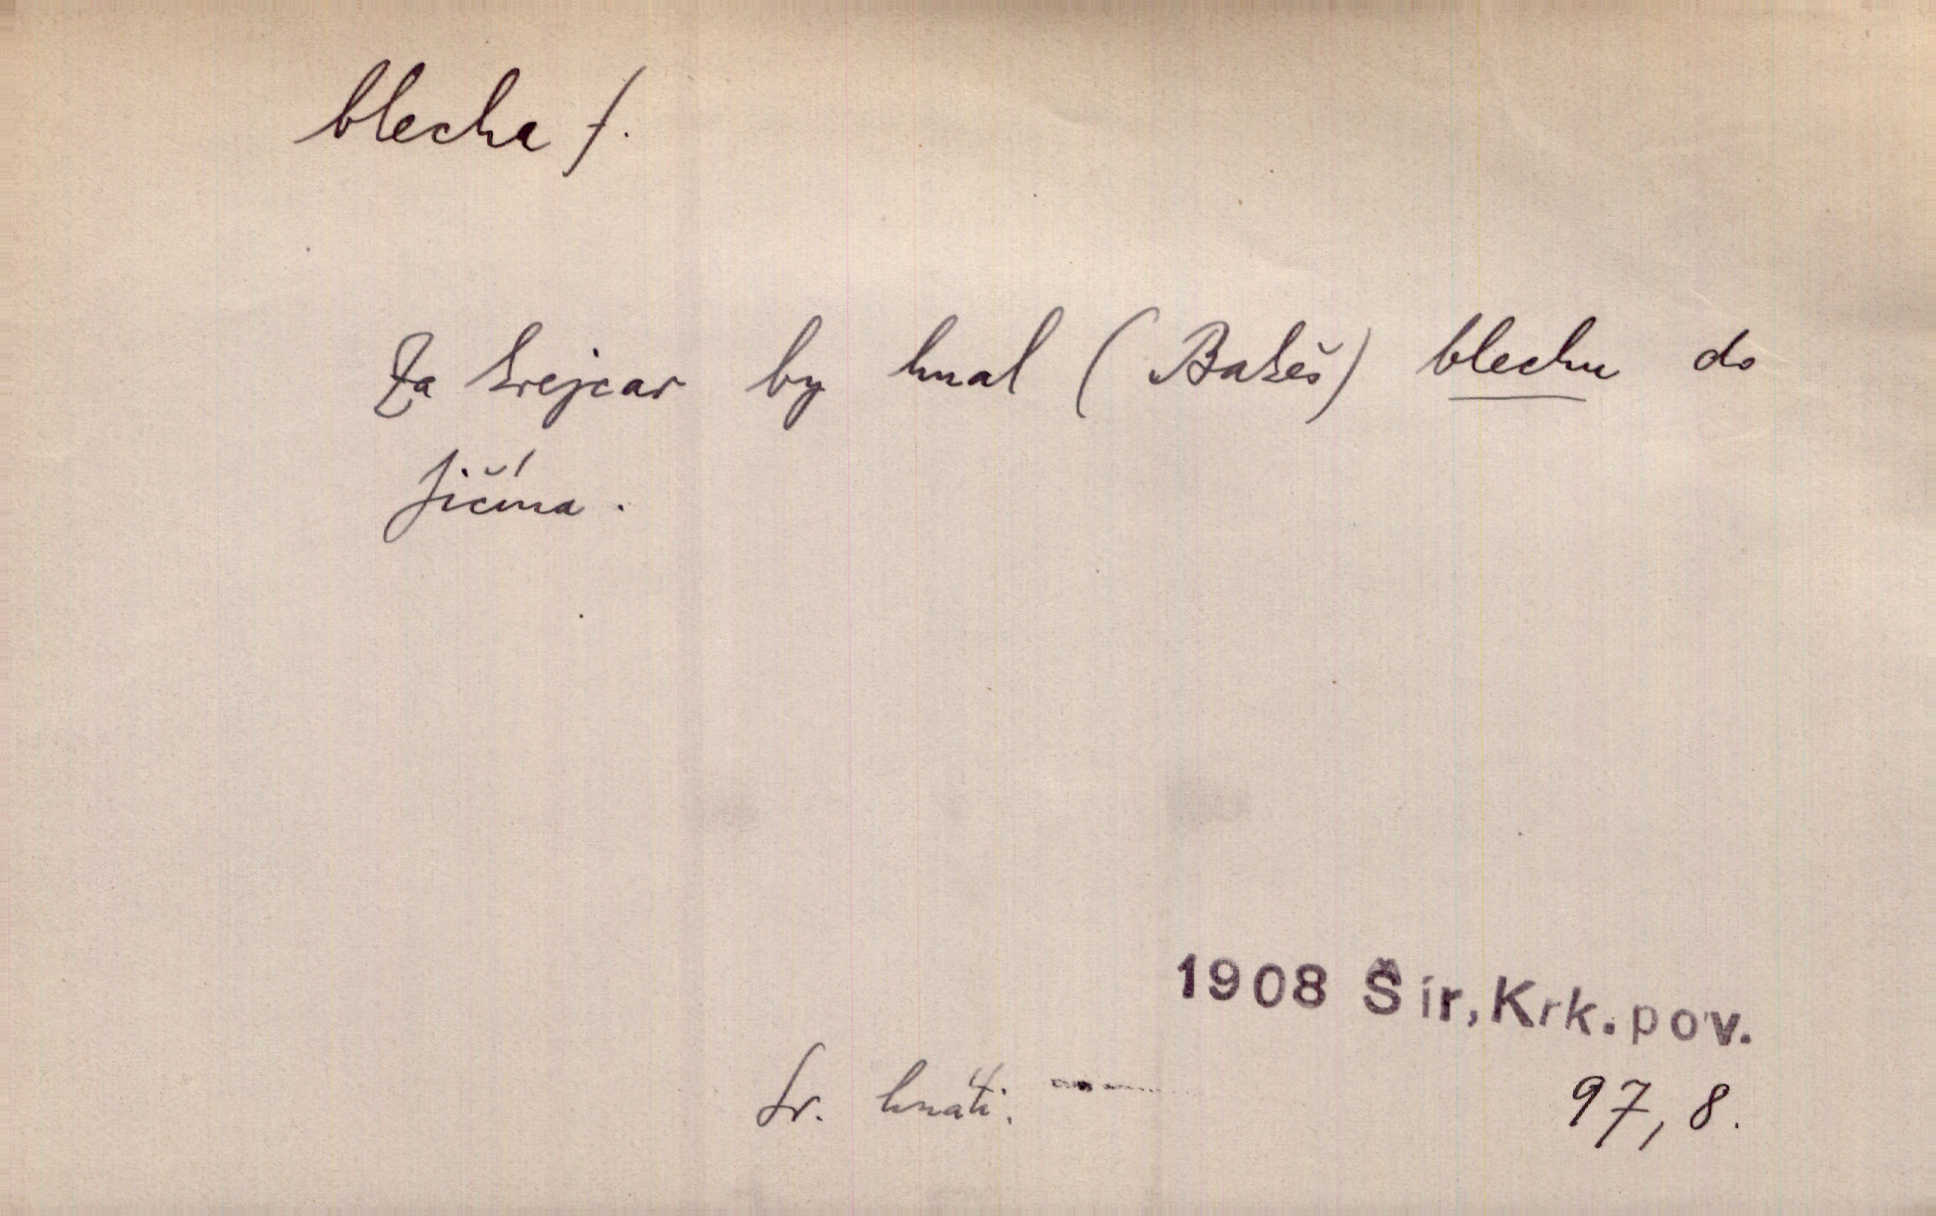 blecha f.
Za krejcar by hnal (Bakeš) blechu do
Jičína.
1908 Šír, Krk. pov.
Sr. hnáti.
97, 8.